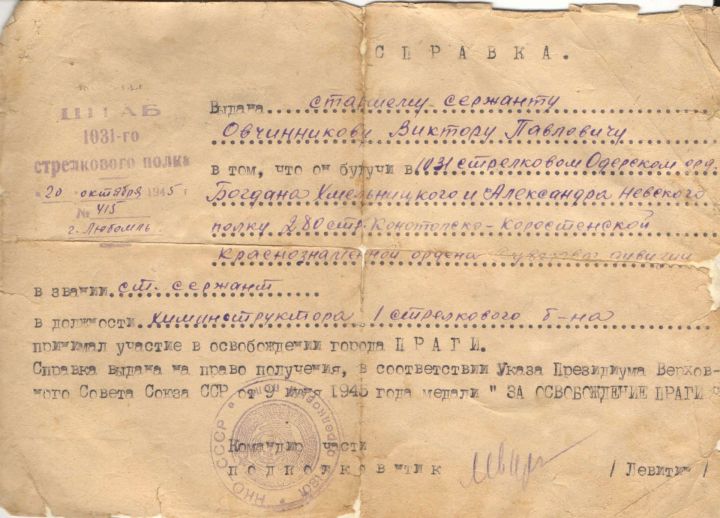 СПРАВКА.
ШТАБ
1031-го
стрелкового полка
"20" октября 1945 г
№ 415
г. Любомль
Выдана старшему сержанту
Овчинникову Виктору Павловичу
в том, что он будучи в 1031 стрелковом Одерском орд.
Богдана Хмельницкого и Александра Невского
полку 280 стр. Конотопско-Коростенской
Краснознаменной ордена Суворова дивизии
в звании ст. сержант
в должности химинструктора 1 стрелкового б-на
принимал участие в освобождении города ПРАГИ.
Справка выдана на право получения, в соответствии Указа Президиума Верхов-
ного Совета Союза ССР от 9 июня 1945 года медали " ЗА ОСВОБОЖДЕНИЕ ПРАГИ "
Командир части
подполковник / Левитин /
НКО СССР